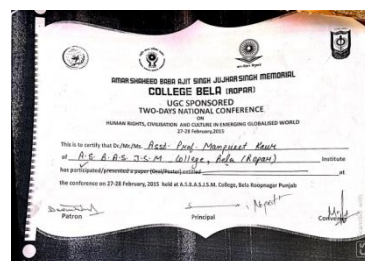 AMAR SHAHEED BABA AJIT SINGH JUJHAR SINGH MEMORIAL
COLLEGE BELA (ROPAR)
UGC SPONSORED
TWO-DAYS NATIONAL CONFERENCE
ON
HUMAN RIGHTS, CIVILISATION AND CULTURE IN EMERGING GLOBALISED WORLD
27-28 February, 2015
This is to certify that Dr./Mr./Ms. Asst. Prof. Manpreet Kaur
of A.S.B.A.S.J.S.M. College, Bela (Ropar) Institute
has participated/presented a paper (Oral/Poster) entitled at
the conference on 27-28 February, 2015 held at A.S.B.A.S.J.S.M. College, Bela Roopnagar Punjab
Patron Principal Convener
CS